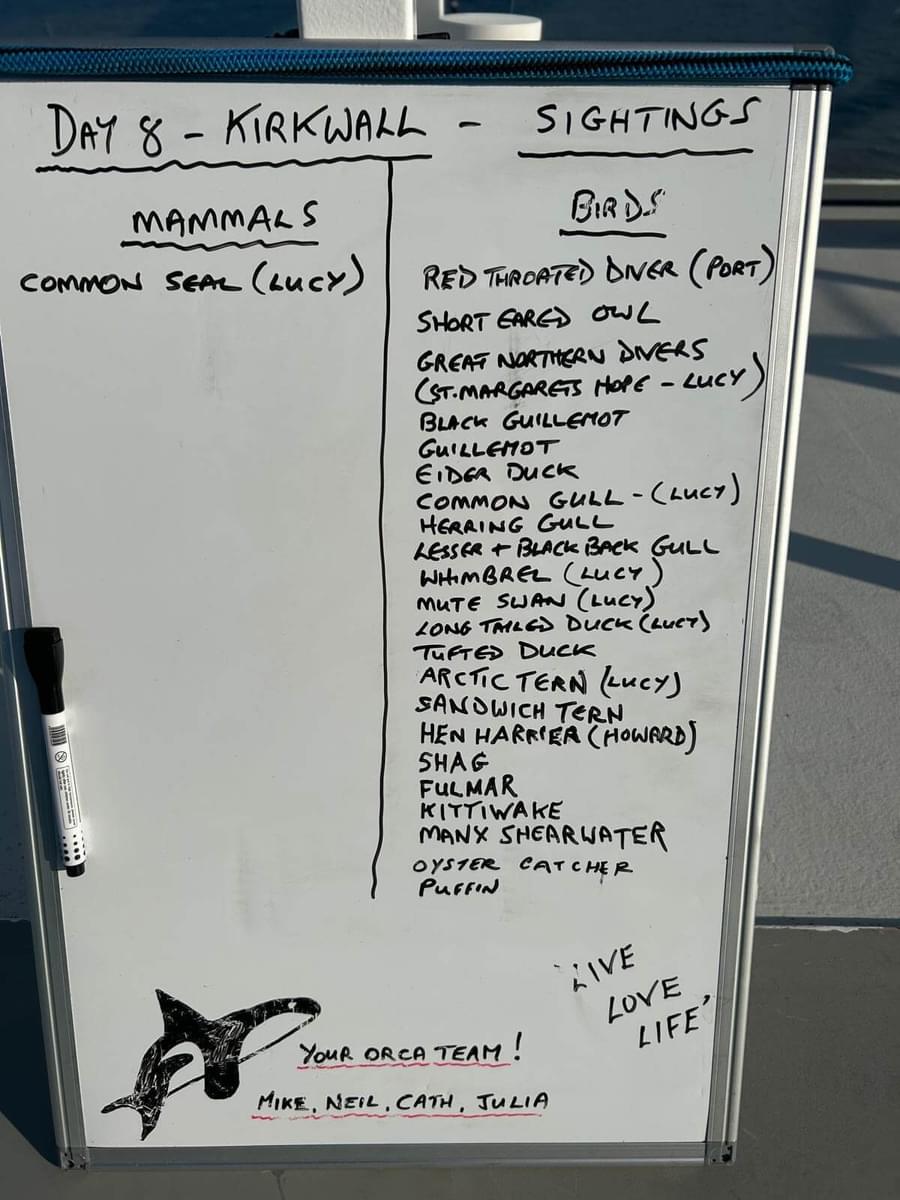 DAY 8 - KIRKWALL - SIGHTINGS
MAMMALS
COMMON SEAL (LUCY)
BIRDS
RED THROATED DIVER (PORT)
SHORT EARED OWL
GREAT NORTHERN DIVERS
(ST.MARGARETS HOPE - LUCY)
BLACK GUILLEMOT
GUILLEMOT
EIDER DUCK
COMMON GULL - (LUCY)
HERRING GULL
LESSER + BLACK BACK GULL
WHIMBREL (LUCY)
MUTE SWAN (LUCY)
LONG TAILED DUCK (LUCY)
TUFTED DUCK
ARCTIC TERN (LUCY)
SANDWICH TERN
HEN HARRIER (HOWARD)
SHAG
FULMAR
KITTIWAKE
MANX SHEARWATER
OYSTER CATCHER
PUFFIN
'LIVE
LOVE
LIFE'
YOUR ORCA TEAM!
MIKE, NEIL, CATH, JULIA